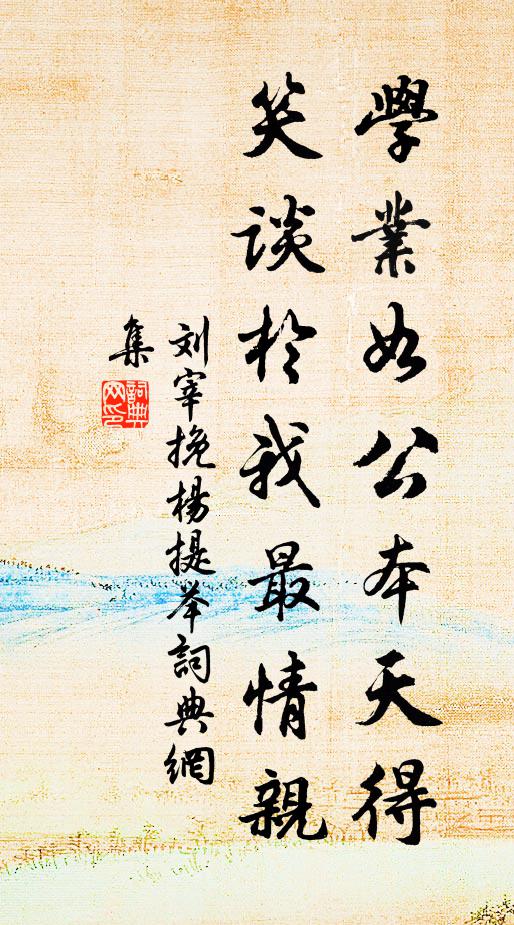 學業如公本天得
笑談於我最情親
刘宰挽楊提举詞典網
集
詞典
网